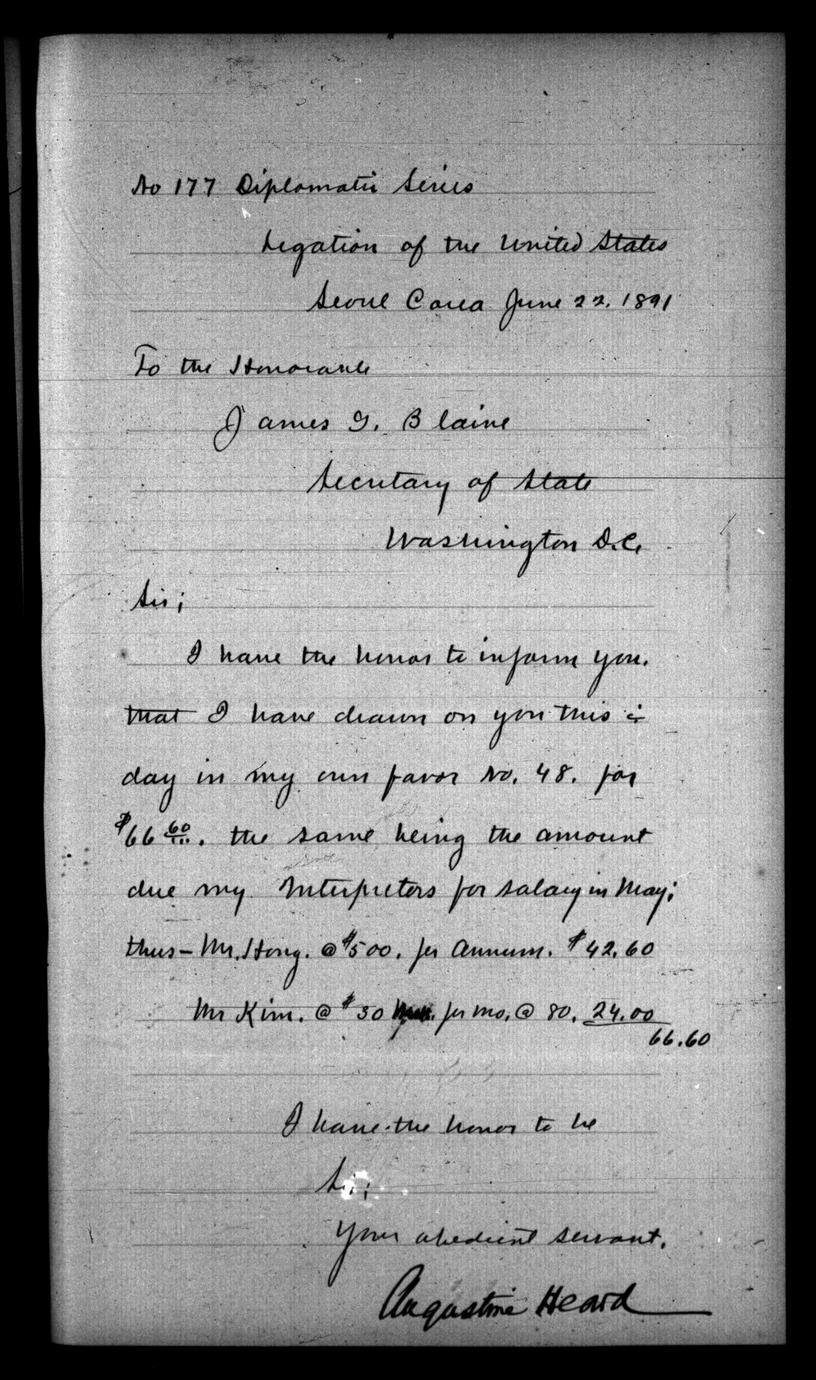 No 177 Diplomatic Series
Legation of the United States
Seoul Corea June 22. 1891
To the Honorable
James G. Blaine
Secretary of State
Washington D.C.
Sir;
I have the honor to inform you.
that I have drawn on you this
day in my own favor No. 48. for
$66 60/100. the same being the amount
due my Interpreters for salary in May;
thus – Mr. Hong. @ $500. per Annum. $42.60
Mr Kim. @ $30 per mo. @ 80. 24.00
66.60
I have the honor to be
Sir;
Your obedient servant.
Augustine Heard